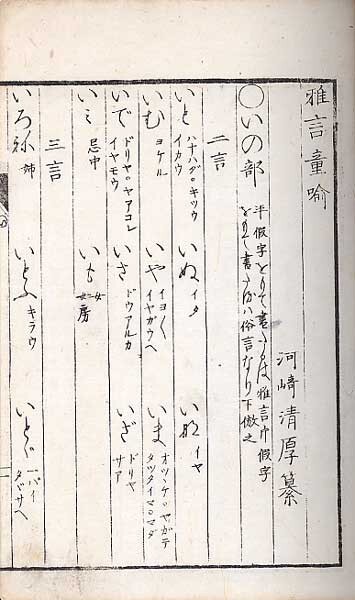 雅言童喩
河﨑清厚纂
○いの部
平假字をもて書たるは雅言片假字
をもて書たるハ俗言なり下倣之
二言
いと ハナハダ○キツウ イカウ
いぬ イタ
いな イヤ
いむ ヨケル
いや イヨ〱 イヤガウヘ
いま オツヽケ○ヤガテ タツタイマ○マダ
いで ドリヤ○ヤアコレ イヤモウ
いさ ドウアルカ
いざ ドリヤ サア
いミ 忌中
いも 女房
三言
いろね 姉
いとふ キラウ
いとゞ 一バイ